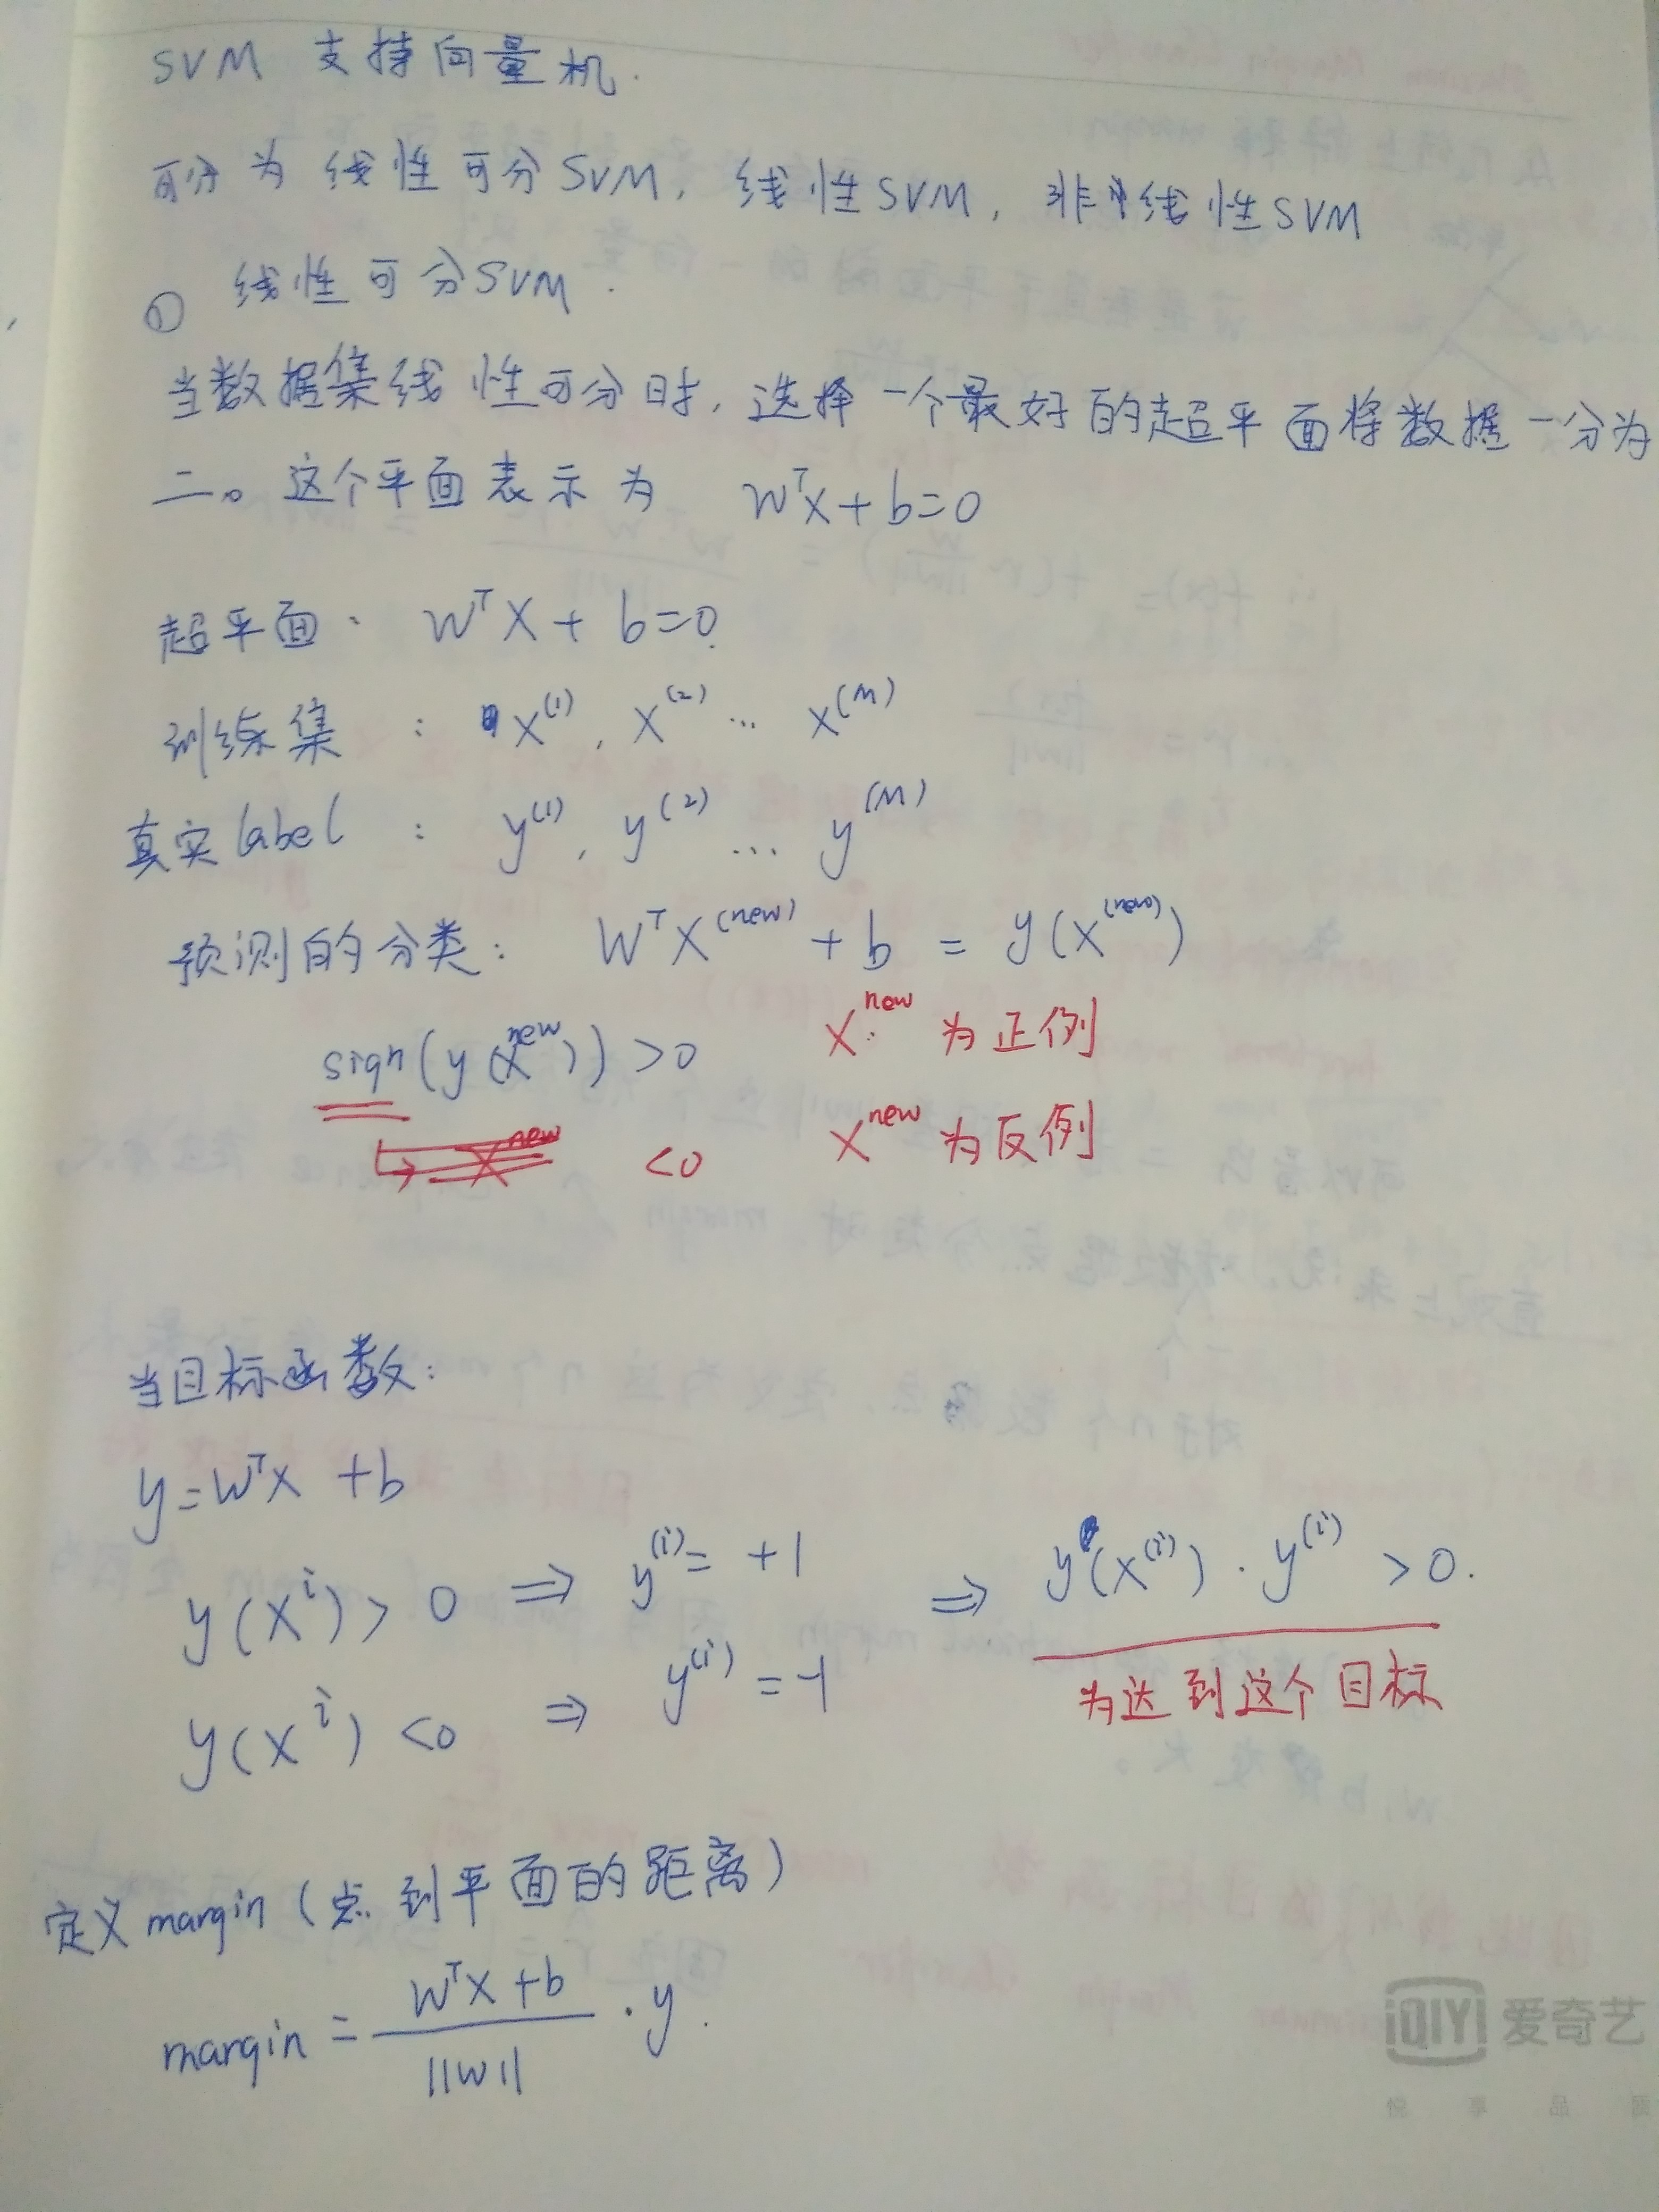 SVM 支持向量机.
可分为 线性可分SVM, 线性SVM, 非线性SVM
① 线性可分SVM.
当数据集线性可分时, 选择一个最好的超平面将数据一分为
二。这个平面表示为 W^T X + b = 0
超平面. W^T X + b = 0
训练集 : X^(1), X^(2) ... X^(M)
真实label : y^(1), y^(2) ... y^(M)
预测的分类: W^T X^(new) + b = y(X^(new))
sign(y(X^new)) > 0 X^new 为正例
<0 X^new 为反例
当目标函数:
y = W^T X + b
y(X^i) > 0 ⇒ y^(i) = +1 ⇒ y(X^(i)) · y^(i) > 0.
y(X^i) < 0 ⇒ y^(i) = -1 为达到这个目标
定义margin (点到平面的距离)
margin = (W^T X + b) / ||W|| · y.
iQIYI 爱奇艺
悦 享 品 质